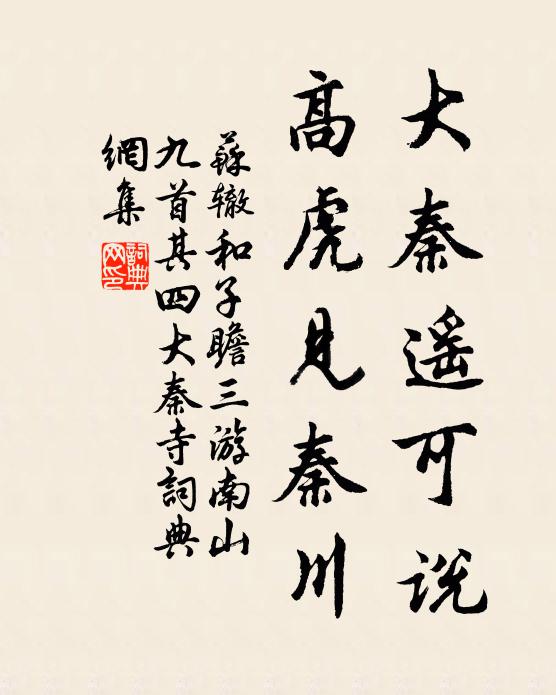 大秦遥可说
高虎见秦川
蘇辙和子瞻三游南山
九首其四大秦寺詞典
網集
詞典
网印